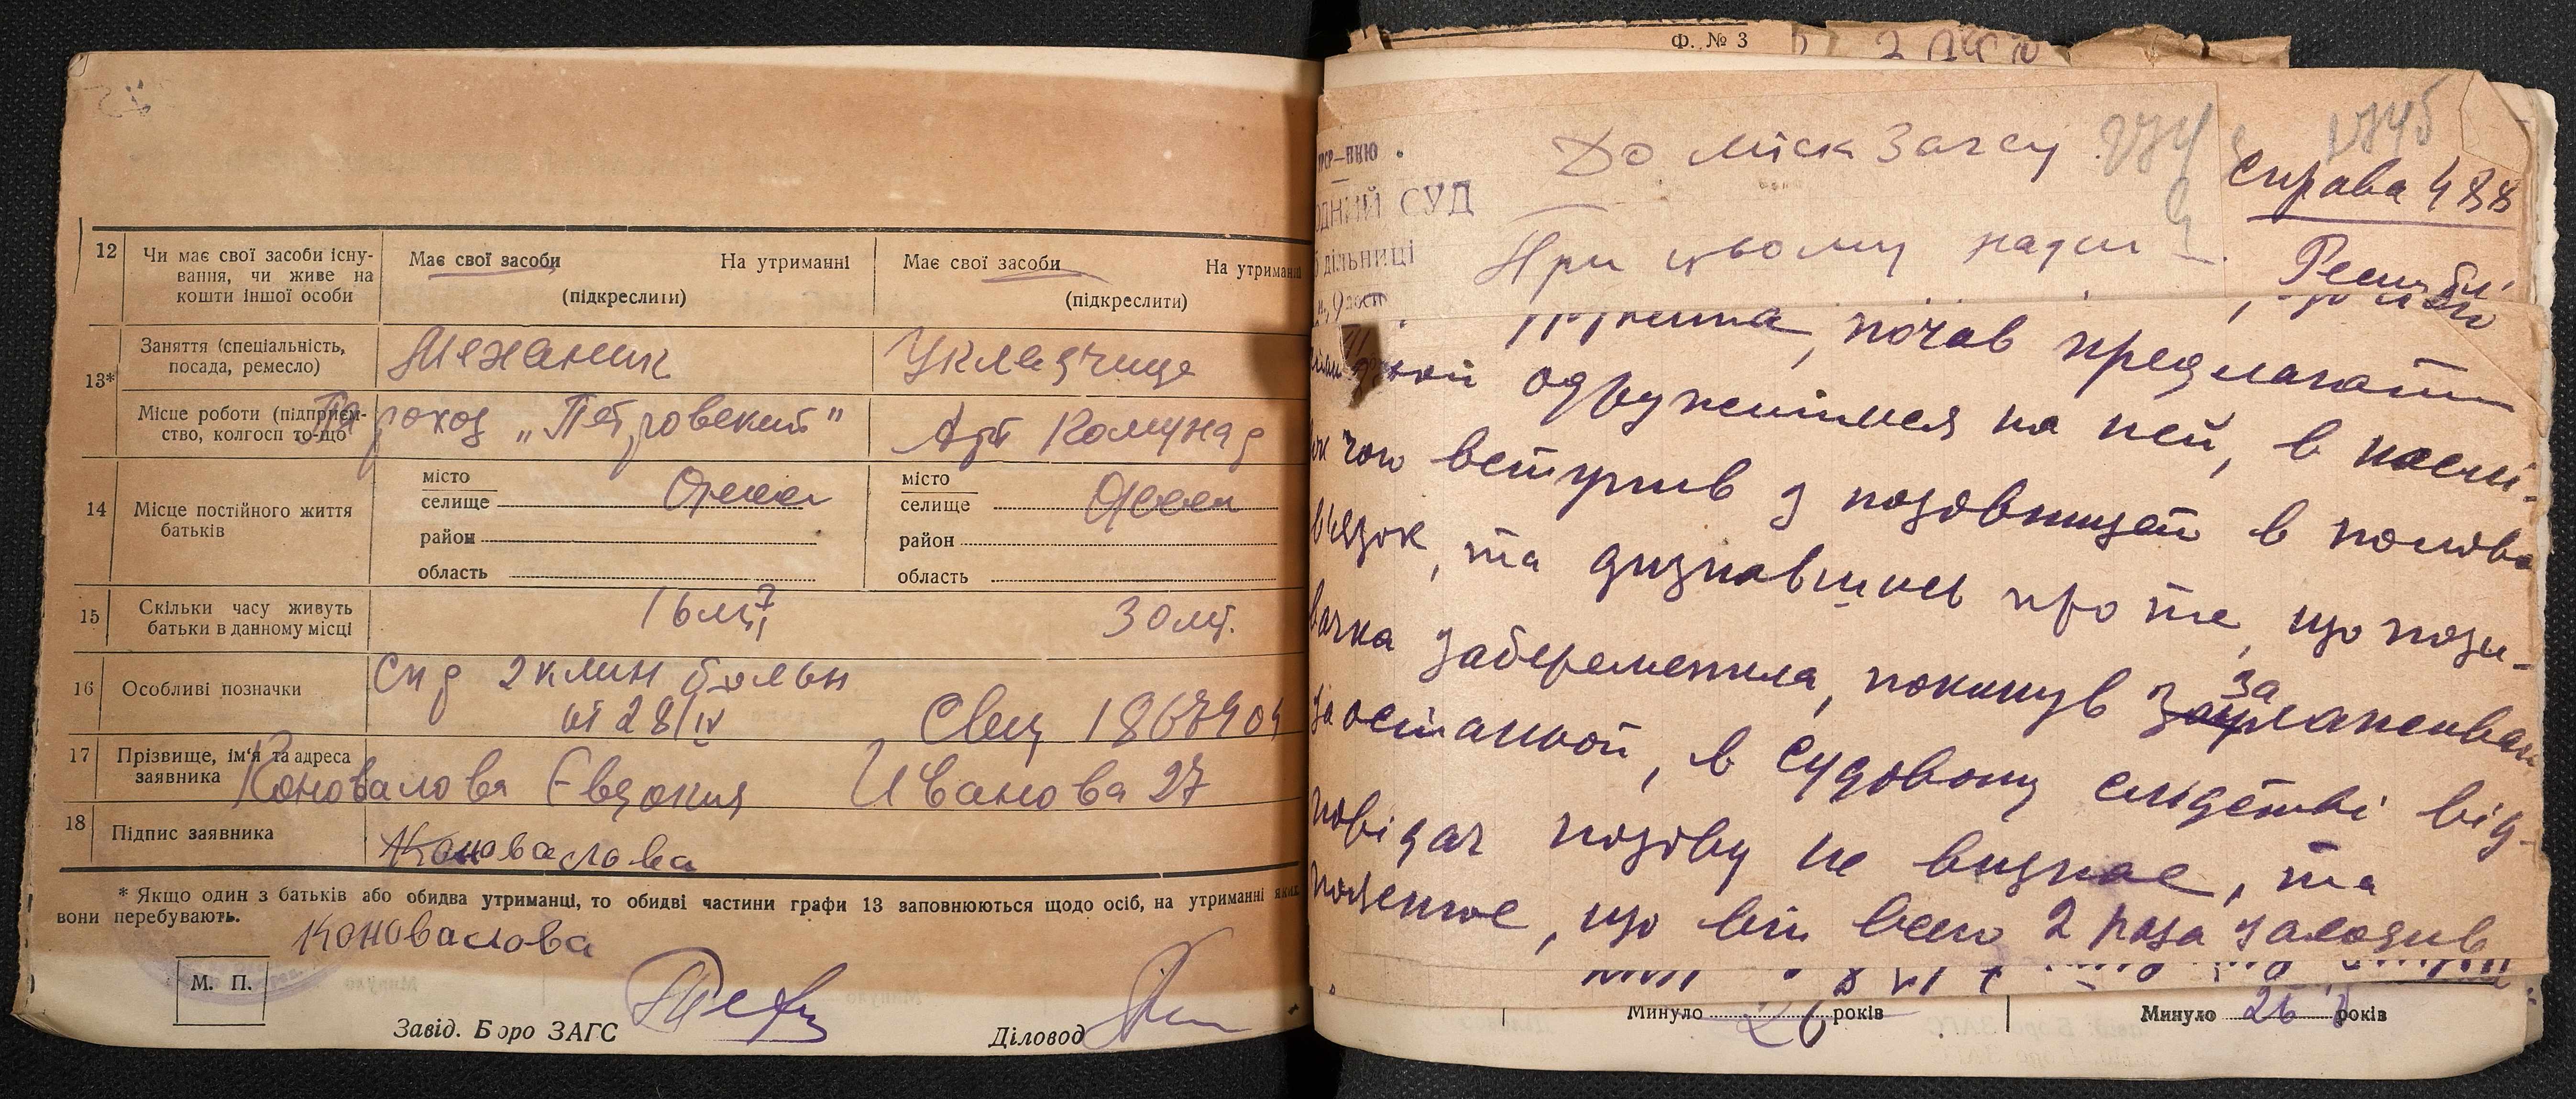 12 Чи має свої засоби існу-
вання, чи живе на
кошти іншої особи
Має свої засоби На утриманні
(підкреслити)
Має свої засоби На утриманні
(підкреслити)
13* Заняття (спеціальність,
посада, ремесло)
Механик
Укладчица
Місце роботи (підприєм-
ство, колгосп то-що
Пароход „Петровский"
Арт Комунар
14 Місце постійного життя
батьків
місто
селище Одесса
район
область
місто
селище Одесса
район
область
15 Скільки часу живуть
батьки в данному місці
16 лет
30 лет.
16 Особливі позначки
Спр 2 клин больн
от 28/IV Свид 1867404
17 Прізвище, ім'я та адреса
заявника
Коновалова Евдокия Иванова 27
18 Підпис заявника
Коновалова
* Якщо один з батьків або обидва утриманці, то обидві частини графи 13 заповнюються щодо осіб, на утриманні яких
вони перебувають.
Коновалова
М. П.
Завід. Бюро ЗАГС
Діловод
Ф. № 3
1745
До міск Загсу 274
Справа 488
ОДНИЙ СУД
дільниці
При цьому
почав предлагати
одруженимся на ней, в наслі-
док чого вступив з позовницей в полова
вьязок, та дизнавшись про те, що пози-
вачка забеременила, покинув
за останньой, в судовому слідстві від-
повідач позову не визнає, та
пояснює, що він всего 2 раза заходив
Минуло 26 років
Минуло 26 років